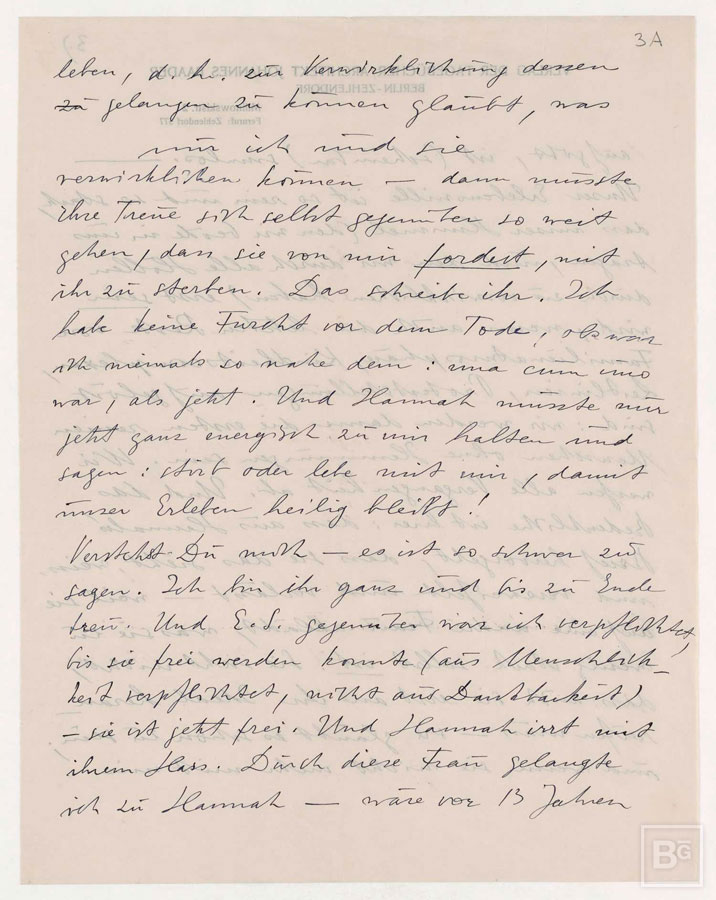 3A
leben, d.h. zur Verwirklichung dessen
zu gelangen zu können glaubt, was
nur ich und sie
verwirklichen können — dann müsste
ihre Treue sich selbst gegenüber so weit
gehen, dass sie von mir fordert, mit
ihr zu sterben. Das schreibe ihr. Ich
habe keine Furcht vor dem Tode, obzwar
ich niemals so nahe dem: una cum uno
war, als jetzt. Und Hannah müsste nur
jetzt ganz energisch zu mir halten und
sagen: stirb oder lebe mit mir, damit
unser Erleben heilig bleibt!
Verstehst Du mich — es ist so schwer zu
sagen. Ich bin ihr ganz und bis zu Ende
treu. Und E.S. gegenüber war ich verpflichtet,
bis sie frei werden konnte (aus Menschlich-
keit verpflichtet, nicht aus Dankbarkeit)
— sie ist jetzt frei. Und Hannah irrt mit
ihrem Hass. Durch diese Frau gelangte
ich zu Hannah — wäre vor 13 Jahren
BG